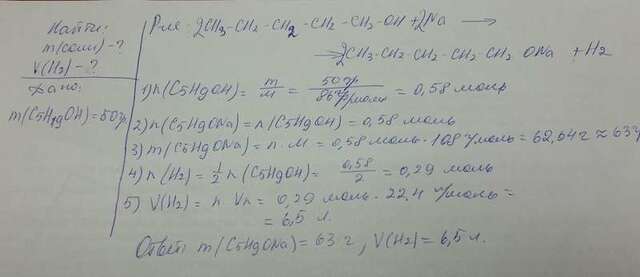 Найти:
m(соли) - ?
V(H2) - ?
Дано:
m(C5H9OH) = 50гр
Р-ие: 2CH3-CH2-CH2-CH2-CH2-OH + 2Na →
→ 2CH3-CH2-CH2-CH2-CH2 ONa + H2
1) n(C5H9OH) = m/M = 50гр/86гр/моль = 0,58 моль
2) n(C5H9ONa) = n(C5H9OH) = 0,58 моль
3) m(C5H9ONa) = n · M = 0,58 моль · 108 г/моль = 62,64г ≈ 63г
4) n(H2) = 1/2 n(C5H9OH) = 0,58/2 = 0,29 моль
5) V(H2) = n Vn = 0,29 моль · 22,4 л/моль =
= 6,5 л.
Ответ: m(C5H9ONa) = 63 г, V(H2) = 6,5 л.